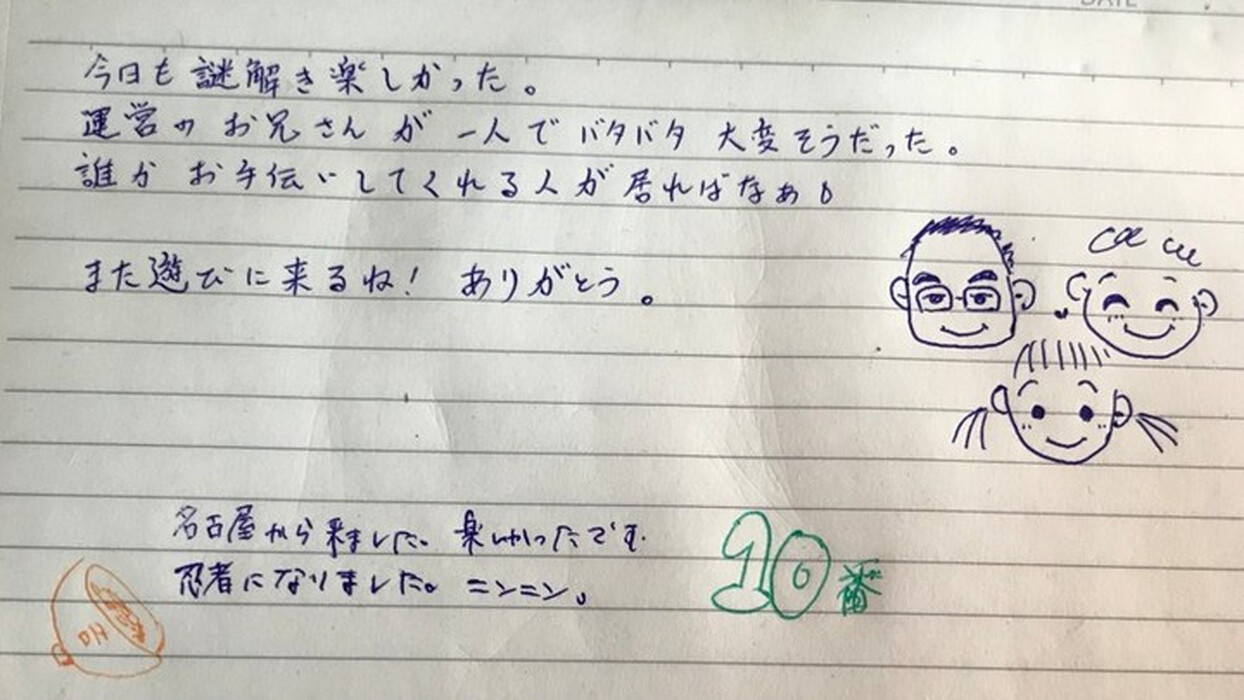 DATE
今日も謎解き楽しかった。
運営のお兄さんが一人でバタバタ大変そうだった。
誰かお手伝いしてくれる人が居ればなぁ。
また遊びに来るね! ありがとう。
名古屋から来ました。楽しかったです。
忍者になりました。ニンニン。
10番
DH